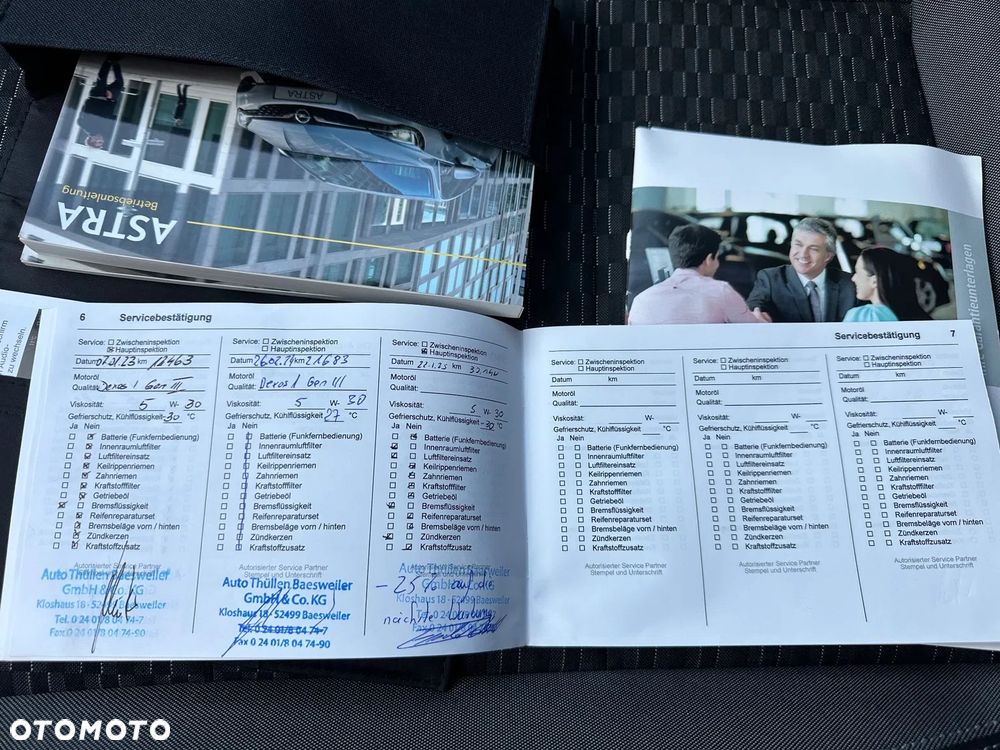 ASTRA
Betriebsanleitung
ASTRA
6 Servicebestätigung
Service: Zwischeninspektion
Hauptinspektion
Datum 01.23 km 11463
Motoröl
Qualität: Dexos 1 Gen III
Viskosität: 5 W- 30
Gefrierschutz, Kühlflüssigkeit -30 °C
Ja Nein
Batterie (Funkfernbedienung)
Innenraumluftfilter
Luftfiltereinsatz
Keilrippenriemen
Zahnriemen
Kraftstofffilter
Getriebeöl
Bremsflüssigkeit
Reifenreparaturset
Bremsbeläge vorn / hinten
Zündkerzen
Kraftstoffzusatz
Autorisierter Service Partner
Stempel und Unterschrift
Auto Thüllen Baesweiler
GmbH & Co. KG
Kloshaus 18 - 52499 Baesweiler
Tel. 0 24 01/8 04 74-7
Fax 0 24 01/8 04 74-90
Service: Zwischeninspektion
Hauptinspektion
Datum 26.02.24 km 21683
Motoröl
Qualität: Dexos 1 Gen III
Viskosität: 5 W- 30
Gefrierschutz, Kühlflüssigkeit 27 °C
Ja Nein
Batterie (Funkfernbedienung)
Innenraumluftfilter
Luftfiltereinsatz
Keilrippenriemen
Zahnriemen
Kraftstofffilter
Getriebeöl
Bremsflüssigkeit
Reifenreparaturset
Bremsbeläge vorn / hinten
Zündkerzen
Kraftstoffzusatz
Autorisierter Service Partner
Stempel und Unterschrift
Auto Thüllen Baesweiler
GmbH & Co. KG
Kloshaus 18 - 52499 Baesweiler
Tel. 0 24 01/8 04 74-7
Fax 0 24 01/8 04 74-90
Service: Zwischeninspektion
Hauptinspektion
Datum 22.1.25 km
Motoröl
Qualität:
Viskosität: 5 W- 30
Gefrierschutz, Kühlflüssigkeit -30 °C
Ja Nein
Batterie (Funkfernbedienung)
Innenraumluftfilter
Luftfiltereinsatz
Keilrippenriemen
Zahnriemen
Kraftstofffilter
Getriebeöl
Bremsflüssigkeit
Reifenreparaturset
Bremsbeläge vorn / hinten
Zündkerzen
Kraftstoffzusatz
- 25% auf die
nächste Wartung
Servicebestätigung 7
Service: Zwischeninspektion
Hauptinspektion
Datum km
Motoröl
Qualität:
Viskosität: W-
Gefrierschutz, Kühlflüssigkeit °C
Ja Nein
Batterie (Funkfernbedienung)
Innenraumluftfilter
Luftfiltereinsatz
Keilrippenriemen
Zahnriemen
Kraftstofffilter
Getriebeöl
Bremsflüssigkeit
Reifenreparaturset
Bremsbeläge vorn / hinten
Zündkerzen
Kraftstoffzusatz
Autorisierter Service Partner
Stempel und Unterschrift
Service: Zwischeninspektion
Hauptinspektion
Datum km
Motoröl
Qualität:
Viskosität: W-
Gefrierschutz, Kühlflüssigkeit °C
Ja Nein
Batterie (Funkfernbedienung)
Innenraumluftfilter
Luftfiltereinsatz
Keilrippenriemen
Zahnriemen
Kraftstofffilter
Getriebeöl
Bremsflüssigkeit
Reifenreparaturset
Bremsbeläge vorn / hinten
Zündkerzen
Kraftstoffzusatz
Autorisierter Service Partner
Stempel und Unterschrift
Service: Zwischeninspektion
Hauptinspektion
Datum km
Motoröl
Qualität:
Viskosität: W-
Gefrierschutz, Kühlflüssigkeit °C
Ja Nein
Batterie (Funkfernbedienung)
Innenraumluftfilter
Luftfiltereinsatz
Keilrippenriemen
Zahnriemen
Kraftstofffilter
Getriebeöl
Bremsflüssigkeit
Reifenreparaturset
Bremsbeläge vorn / hinten
Zündkerzen
Kraftstoffzusatz
Autorisierter Service Partner
Stempel und Unterschrift
OTOMOTO